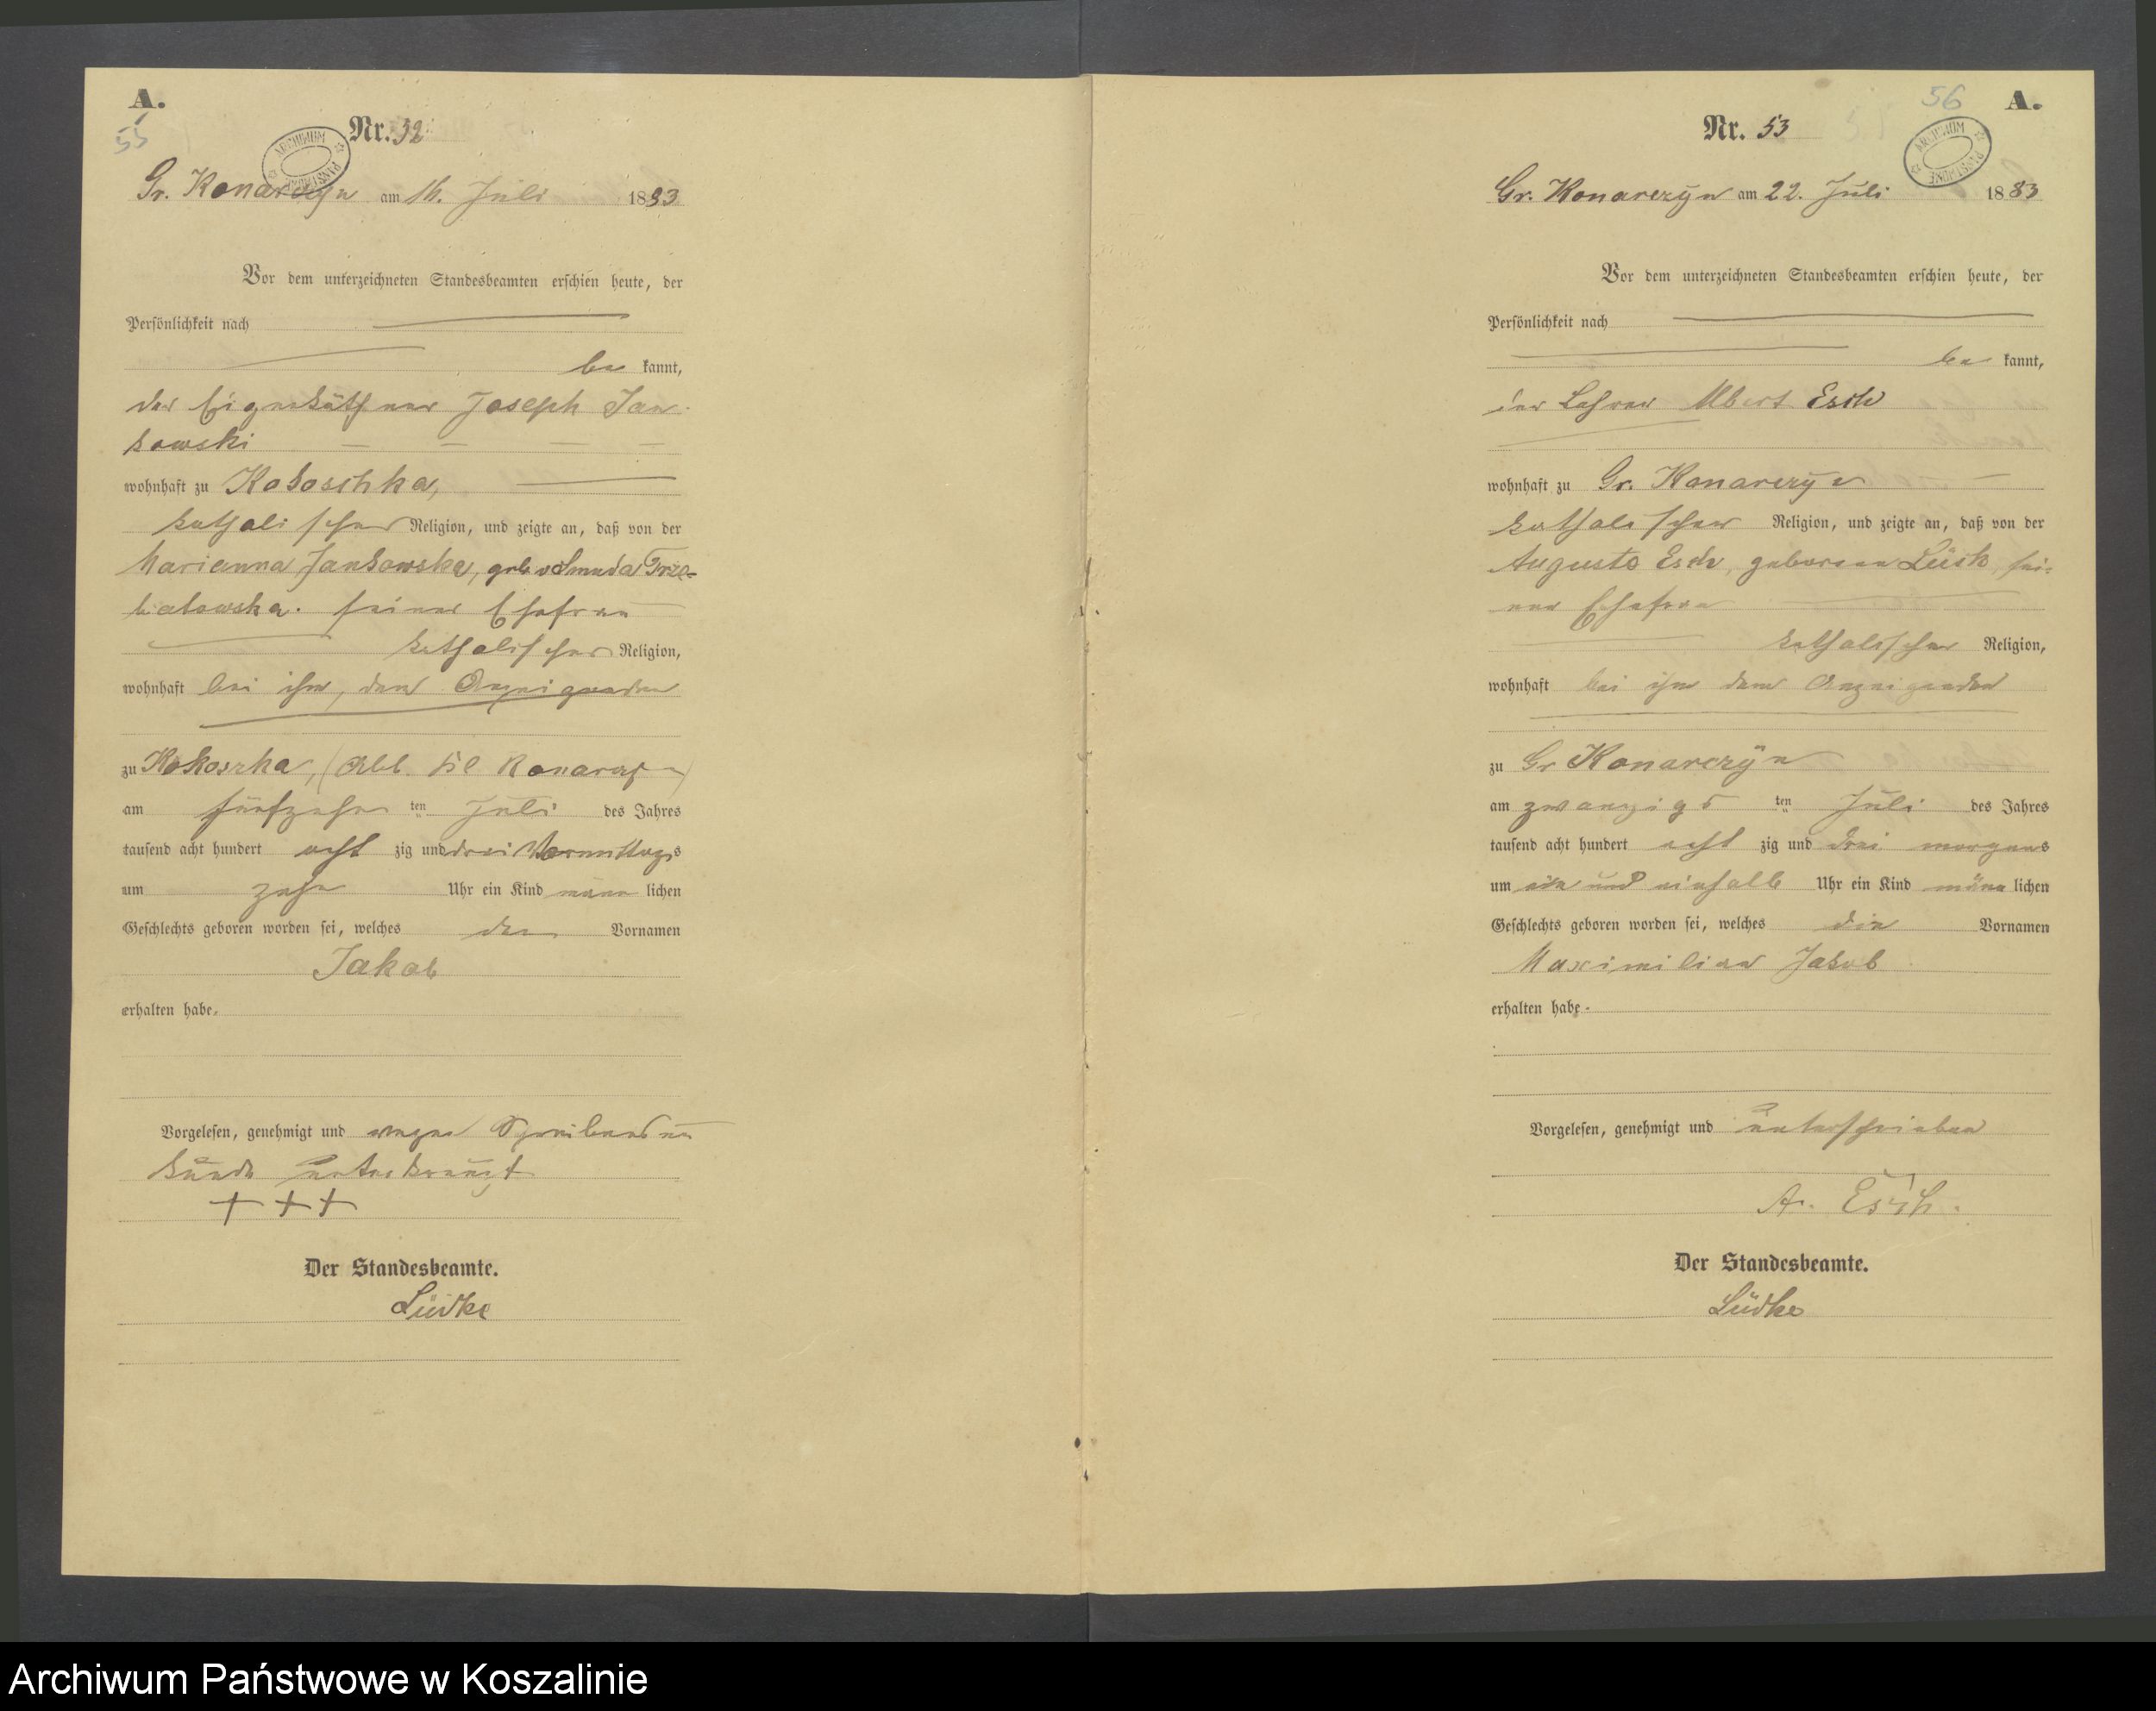 A.
55
Nr. 52
ARCHIWUM PAŃSTWOWE
Gr. Konarczyn am 16. Juli 1883
Vor dem unterzeichneten Standesbeamten erschien heute, der
Persönlichkeit nach
be kannt,
der Eigenkäthner Joseph Jan-
kowski
wohnhaft zu Kokoschka,
katholischer Religion, und zeigte an, daß von der
Marianna Jankowska, geb. v Smuda Trze-
biatowska. seiner Ehefrau
katholischer Religion,
wohnhaft bei ihm, dem Anzeigenden
zu Kokoszka, (Abb. Konarczyn)
am fünfzehn ten Juli des Jahres
tausend acht hundert acht zig und drei Vormittags
um zehn Uhr ein Kind männ lichen
Geschlechts geboren worden sei, welches den Vornamen
Jakob
erhalten habe.
Vorgelesen, genehmigt und wegen Schreibensun
kunde unterkreuzt
+ + +
Der Standesbeamte.
Lüdke
56
A.
Nr. 53
ARCHIWUM PAŃSTWOWE
Gr. Konarczyn am 22. Juli 1883
Vor dem unterzeichneten Standesbeamten erschien heute, der
Persönlichkeit nach
be kannt,
der Lehrer Albert Esch
wohnhaft zu Gr. Konarczyn
katholischer Religion, und zeigte an, daß von der
Auguste Esch, geborenen Lück, sei-
ner Ehefrau
katholischer Religion,
wohnhaft bei ihm dem Anzeigenden
zu Gr Konarczyn
am zwanzigs ten Juli des Jahres
tausend acht hundert acht zig und drei morgens
um ein und einhalb Uhr ein Kind männ lichen
Geschlechts geboren worden sei, welches die Vornamen
Maximilian Jakob
erhalten habe.
Vorgelesen, genehmigt und unterschrieben
A. Esch.
Der Standesbeamte.
Lüdke
Archiwum Państwowe w Koszalinie